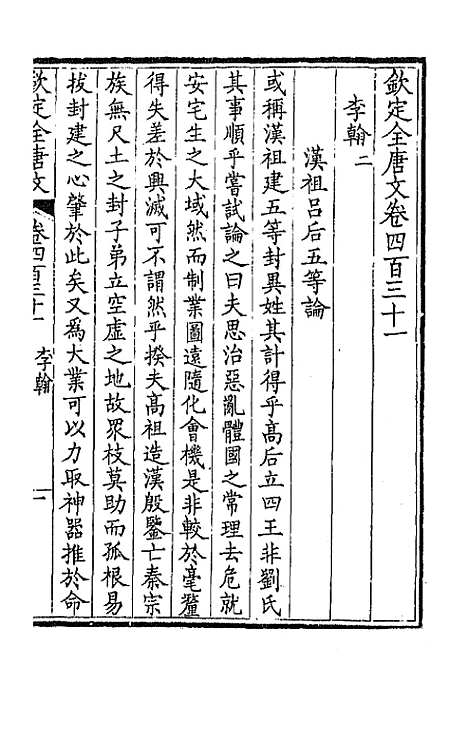 欽定全唐文卷四百三十一
李翰二
漢祖呂后五等論
或稱漢祖建五等封異姓其計得乎高后立四王非劉氏
其事順乎嘗試論之曰夫思治惡亂體國之常理去危就
安宅生之大域然而制業圖遠隨化會機是非較於毫釐
得失差於興滅可不謂然乎揆夫高祖造漢殷鑒亡秦宗
族無尺土之封子弟立空虛之地故眾枝莫助而孤根易
拔封建之心肇於此矣又爲大業可以力取神器推於命
欽定全唐文
卷四百三十一
李翰
一